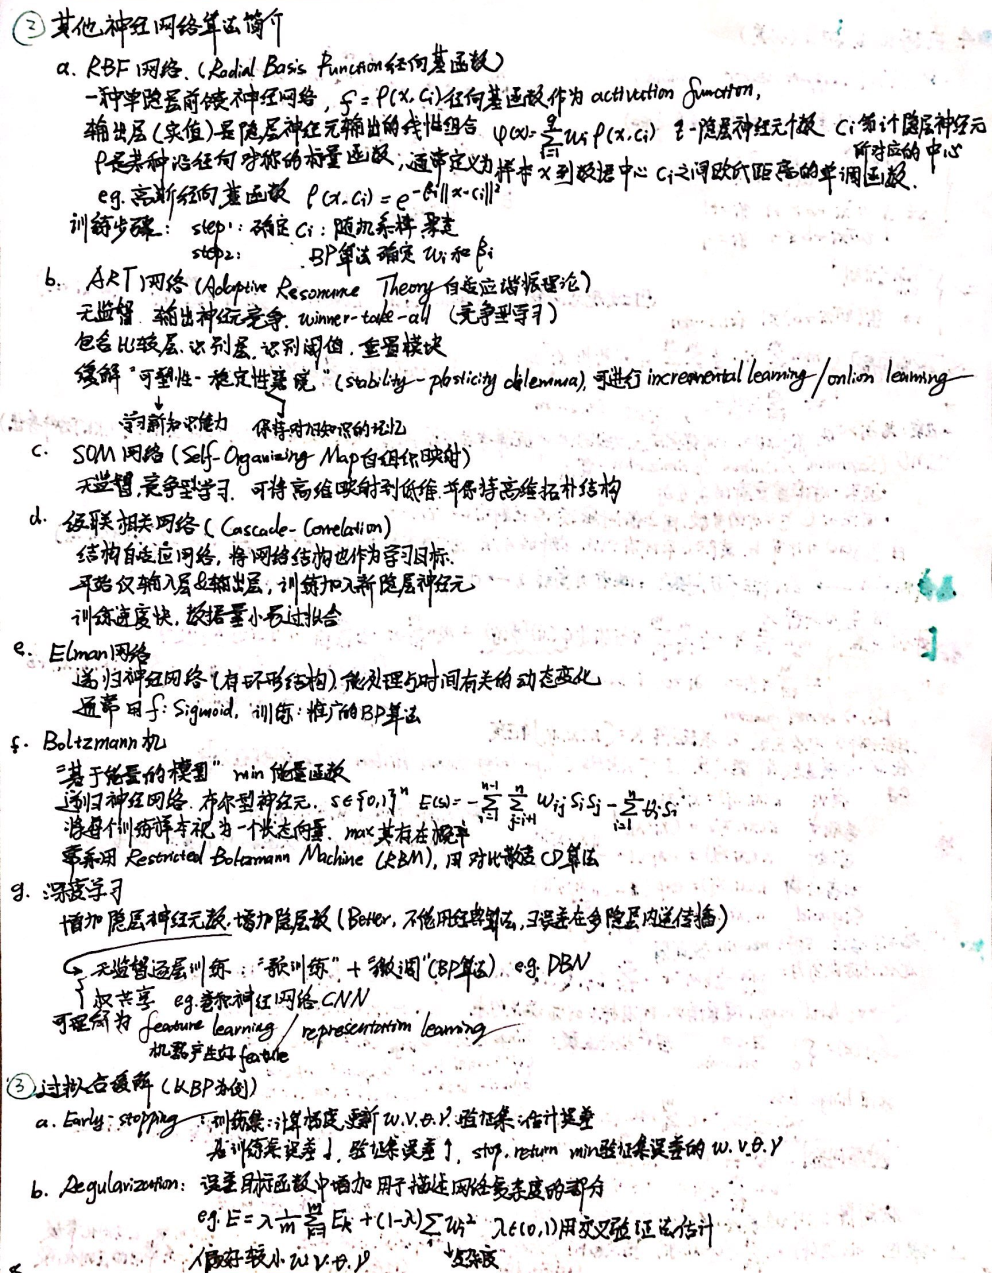 ② 其他神经网络算法简介
a. RBF 网络. (Radial Basis Function 径向基函数)
一种单隐层前馈神经网络, f = ρ(x, ci) 径向基函数作为 activation function,
输出层(实值)是隐层神经元输出的线性组合 φ(x)=∑_{i=1}^{q} wi ρ(x, ci) q-隐层神经元个数 ci 第i个隐层神经元
所对应的中心
ρ是某种沿径向对称的标量函数, 通常定义为样本x到数据中心ci之间欧氏距离的单调函数.
eg. 高斯径向基函数 ρ(x, ci) = e^{-βi||x-ci||²}
训练步骤: step1: 确定ci: 随机采样 聚类
step2: BP算法 确定 wi 和 βi
b. ART 网络 (Adaptive Resonance Theory 自适应谐振理论)
无监督. 输出神经元竞争. winner-take-all (竞争型学习)
包含比较层. 识别层. 识别阈值. 重置模块
缓解 "可塑性-稳定性窘境" (stability-plasticity dilemma), 可进行 incremental learning / onlion learning
↓学习新知识能力 保持对旧知识的记忆
c. SOM 网络 (Self-Organizing Map 自组织映射)
无监督, 竞争型学习. 可将高维映射到低维 并保持高维拓扑结构
d. 级联相关网络 (Cascade-Correlation)
结构自适应网络, 将网络结构也作为学习目标.
开始仅输入层&输出层, 训练加入新隐层神经元
训练速度快, 数据量小易过拟合
e. Elman 网络
递归神经网络 (有环形结构) 能处理与时间有关的动态变化
通常用 f: Sigmoid. 训练: 推广的BP算法
f. Boltzmann 机
"基于能量的模型" min 能量函数
递归神经网络. 布尔型神经元. s∈{0,1}ⁿ E(s)=-∑_{i=1}^{n-1} ∑_{j=i+1}^{n} wij si sj - ∑_{i=1}^{n} θi si
将每个训练样本视为一个状态向量. max 其存在概率
常采用 Restricted Boltzmann Machine (RBM), 用对比散度 CD算法
g. 深度学习
增加隐层神经元数. 增加隐层数 (Better, 不能用经典算法, ∃误差在多隐层内逆传播)
↳ 无监督逐层训练: "预训练" + "微调"(BP算法). eg. DBN
权共享 eg. 卷积神经网络 CNN
可理解为 feature learning / representation learning
机器产生好 feature
③ 过拟合缓解 (以BP为例)
a. Early-stopping: 训练集: 计算梯度, 更新 w.v.θ.γ. 验证集: 估计误差
若训练集误差↓, 验证集误差↑, stop. return min验证集误差的 w.v.θ.γ
b. Regularization: 误差目标函数中增加用于描述网络复杂度的部分
eg. E = λ 1/m ∑_{k=1}^{m} Ek + (1-λ) ∑_i wi² λ∈(0,1) 用交叉验证法估计
↓复杂度
偏好较小 w.v.θ.γ